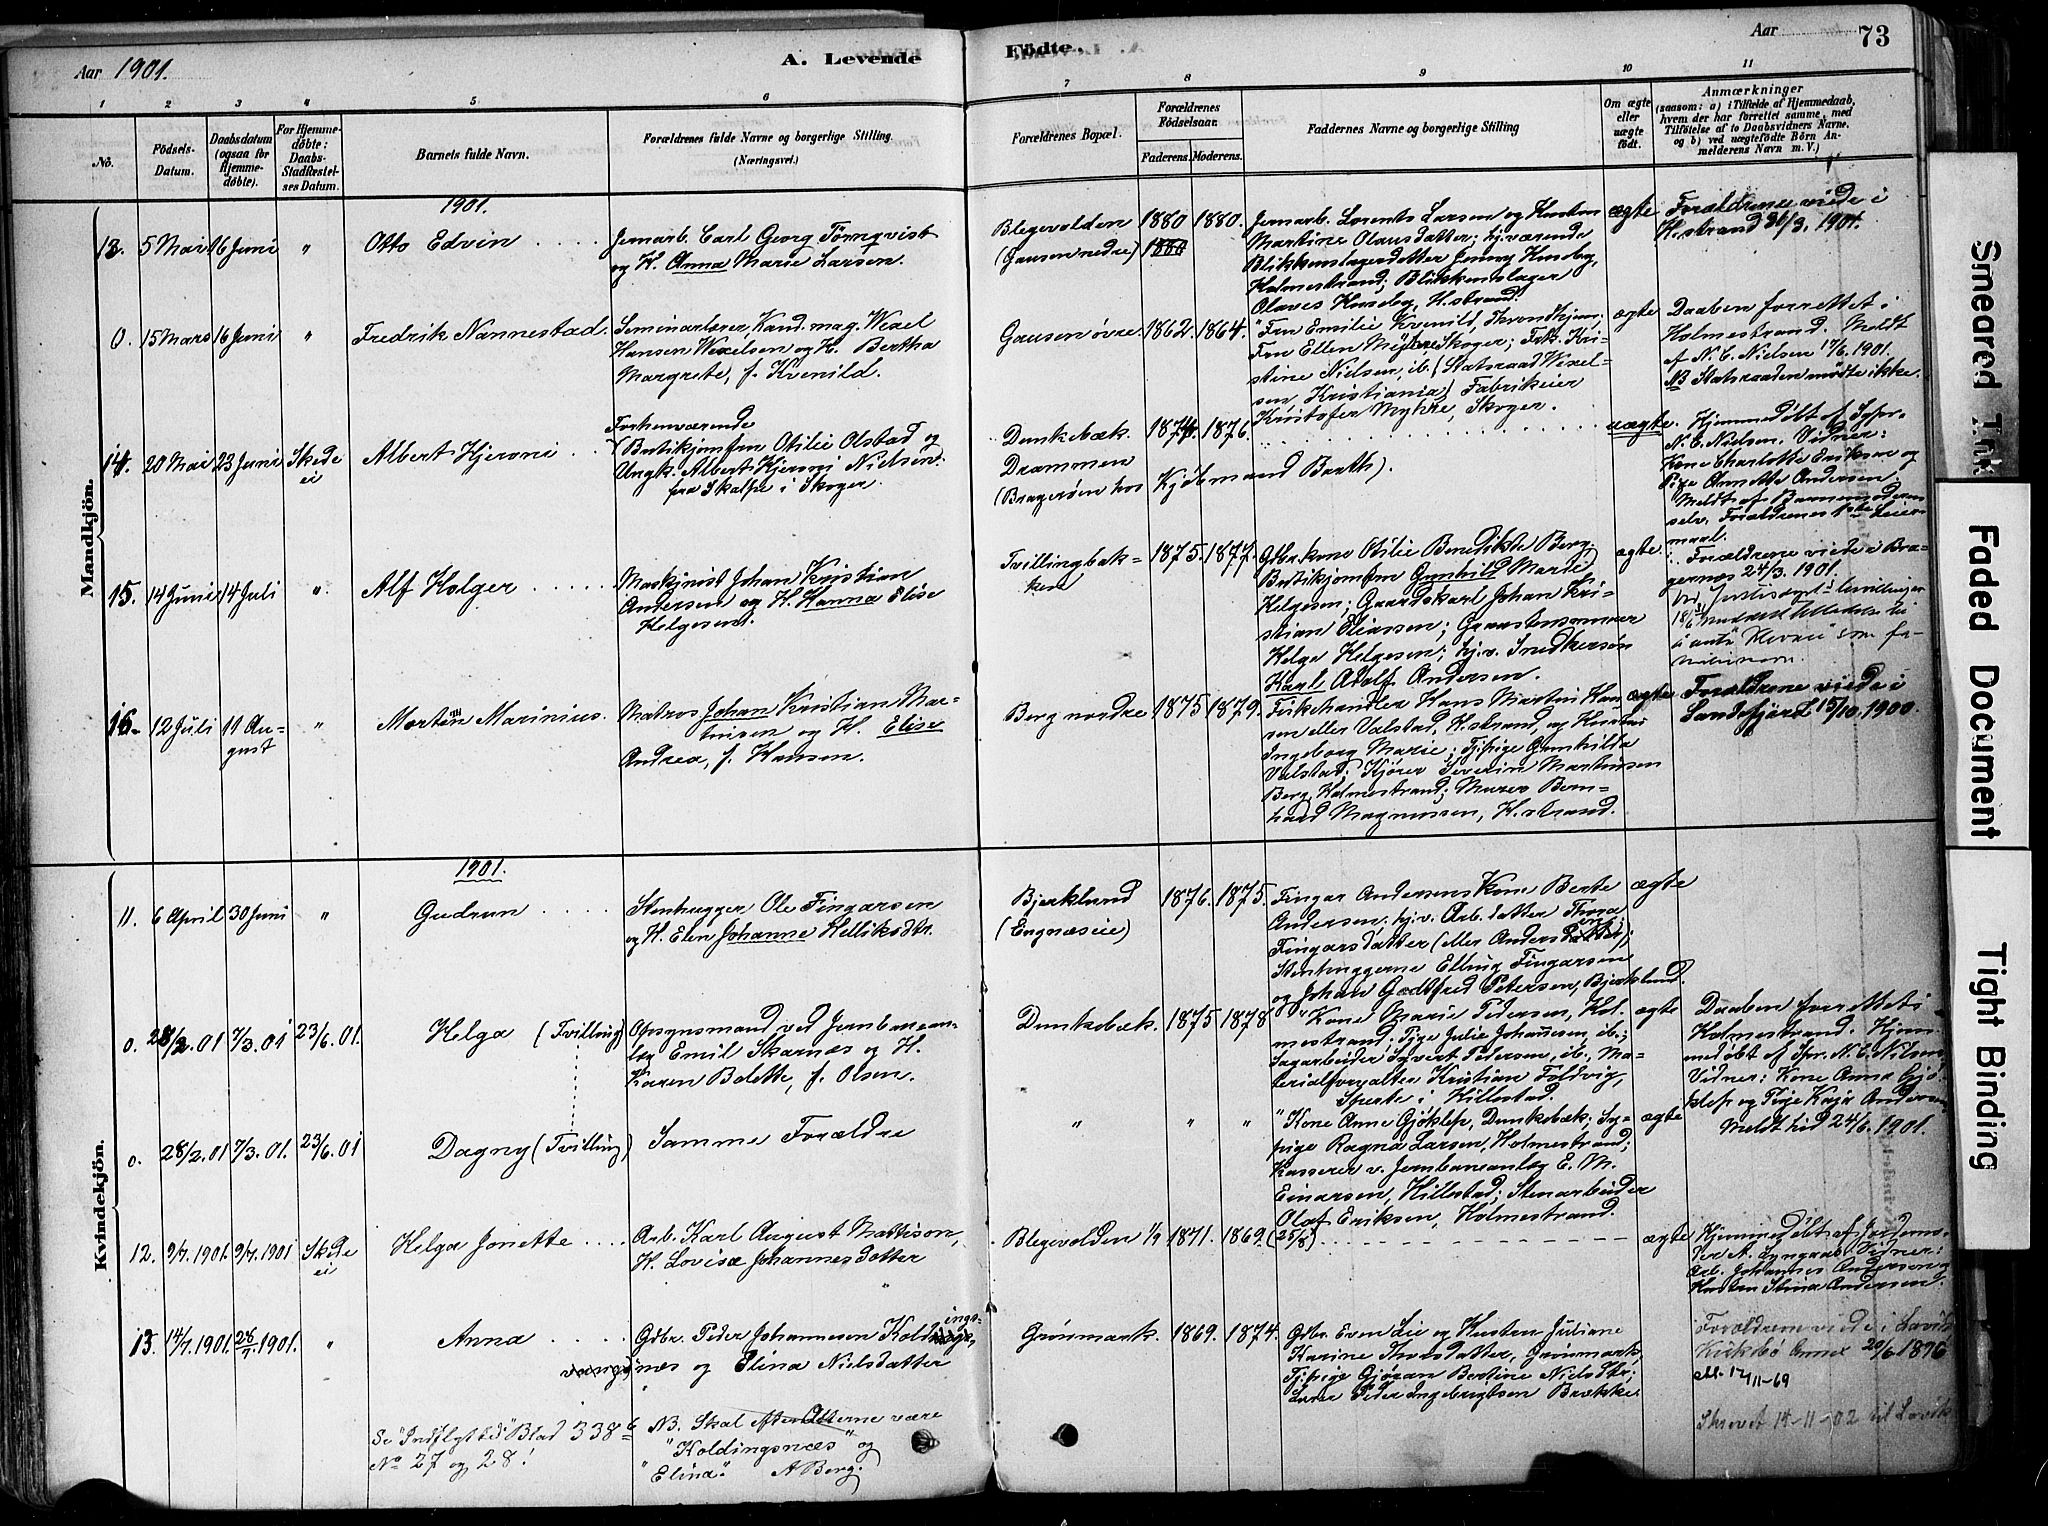 Aar 1901. A. Levende Födte. Aar 73
1 2 3 4 5 6 7 8 9 10 11
No. Födsels-Datum. Daabsdatum (ogsaa for Hjemme-döbte). For Hjemme-döbte: Daabs-Stadfæstel-ses Datum. Barnets fulde Navn. Forældrenes fulde Navne og borgerlige Stilling. (Næringsvei.) Forældrenes Bopæl. Forældrenes Födselsaar. Faderens. Moderens. Faddernes Navne og borgerlige Stilling Om ægte eller uægte födt. Anmærkninger (saasom: a) i Tilfælde af Hjemmedaab, hvem der har forrettet samme, med Tilföielse af to Daabsvidners Navne. og b) ved uægtefödte Börn An-melderens Navn m. V.)
Mandkjön.
1901.
13. 5 Mai 16 Juni " Otto Edvin
Jernarb. Carl Georg Törnqvist
og H. Anna Marie Larsen.
Blegevolden
(Gausen nedre)
1880 1880.
Jernarb. Lorents Larsen og Hustru
Martine Olausdatter; hj.værende
Blikkenslagerdatter Jenny Huseby,
Holmestrand; Blikkenslager
Olaves Huseby, H.strand.
ægte
Forældrene viede i
H.strand 31/3 1901.
0. 15 Mars 16 Juni " Fredrik Nannestad.
Seminarlærer, Kand. mag. Wexel
Hansen Wexelsen og H. Bertha
Margrete, f. Kvenild.
Gausen övre.
1862. 1864.
"Fru Emilie Kvenild, Throndhjem;
Fru Ellen Myhre, Skoger; Frk. Kri-
stine Nielsen, ib. (Statsraad Wexel-
sen, Kristiania) Fabrikeier
Kristofer Myhre, Skoger.
ægte
Daaben forrettet i
Holmestrand. Meldt
af N. C. Nielsen 17/6 1901.
NB Statsraaden mödte ikke.
14. 20 Mai 23 Juni Skede ei Albert Hjeroni
Forhenværende
Butikjomfru Otilie Olstad og
Ungk. Albert Hjeroni Nielsen
fra Skalpe i Skoger.
Dunkebæk.
Drammen
(Bragerøen hos Kjöbmand Barth).
1874. 1876.
uægte.
Hjemmedöbt af Spr.
N. C. Nielsen. Vidner:
Kone Charlotte Eriksen og
Pige Annette Andersen.
Meldt af Barnemoderen
selv. Forældrenes 1ste Leier-
maal.
15. 14 Juni 14 Juli " Alf Holger
Maskinist Johan Kristian
Andersen og H. Hanna Elise
Helgesen.
Tvillingbak-
ken
1875. 1877.
Gdbr.kone Otilie Benedikte Berg.
Butikjomfru Gunhild Marie
Helgesen; Gaardskarl Johan Kri-
stian Eliassen; Graastensmurer
Helge Helgesen; hj.v. Snedkersön
Karl Adolf Andersen.
ægte
Forældrene viede i Bra-
gernes 24/3 1901.
16. 12 Juli 11 Au-
gust " Morten Marinius.
Matros Johan Kristian Mar-
tinsen og H. Elise
Andrea, f. Hansen.
Berg nordre
1875 1879.
Fiskehandler Hans Martin Han-
sen eller Valstad, H.strand, og Hustru
Ingeborg Marie; Tj.pige Gunhilda
Valstad; Kjörer Severin Martinsen
Berg, Holmestrand; Murer Bern-
hard Magnussen, H.strand.
ægte
Forældrene viede i
Sandefjord 15/10 1900.
Kvindekjön.
1901.
11. 6 April 30 Juni " Gudrun
Stenhugger Ole Fingarsen
og H. Elen Johanne Kelliksdtr.
Bjerklund
(Engnæseie)
1876. 1875.
Fingar Andersens Kone Berte
Andersen; hj.v. Arb.datter Thora
Fingarsdatter (eller Andersen);
Stenhuggerne Elling Fingarsen
og Johan Godtfred Petersen, Bjerklund.
ægte
0. 28/2.01 7/3.01 23/6.01. Helga (Tvilling)
Opsynsmand ved Jernbanean-
læg Emil Skarnæs og H.
Karen Bolette, f. Olsen.
Dunkebæk.
1875 1878
"Kone Marie Pedersen, Hol-
mestrand; Pige Julie Johannesen, ib.;
Sagarbeider Syvert Pedersen, ib., Ma-
terialforvalter Kristian Foldvig,
Sperte i Hillestad.
ægte
Daaben forrettet i
Holmestrand. Hjem-
medöbt af Spr. N. C. Nilsen
Vidner: Kone Anna Gjö-
klep og Pige Kaja Andersen
Meldt hid 24/6 1901.
0. 28/2.01 7/3.01. 23/6.01 Dagny (Tvilling)
Samme Forældre
" " "
"Kone Anne Gjöklep, Dunkebæk; Sy-
pige Ragna Larsen, Holmestrand;
Kasserer v. Jernbaneanlæg E. M.
Einarsen, Hillestad; Stenarbeider
Olaf Eriksen, Holmestrand.
ægte
12. 9/7.1901. 9/7.1901 Skede ei Helga Jonette
Arb. Karl August Mattison,
H. Lovisa Johannesdotter
Blegevolden 1/9 1871. 1869. (25/8)
ægte
Hjemmedöbt af Jordemo-
der A. Lyngaas. Vidner:
Arb. Johannes Andersen og
Hustru Stina Andersen.
13. 14/7.1901. 28/7.1901. " Anna
Gdbr. Peder Johannesen Koldings-
næs og Elina Nielsdatter
Grönmark.
1869. 1874.
Gdbr. Even Lie og Hustru Juliane
Karine Thorsdatter, Grönmark,
Tj.pige Gjöran Bertine Nielsdtr;
Lars Peder Ingebrigtsen Brække.
Forældrene viede i Lavik
Kirkebö Annex 20/6 1896
Skrevet 14-11-02 til Lavik
Se "Indflyttede" Blad 338 b
No 27 og 28!
NB. Skal efter Atterne være
"Koldingsnæs" og
"Elina". A Berg.
Smeared Ink
Faded Document
Tight Binding